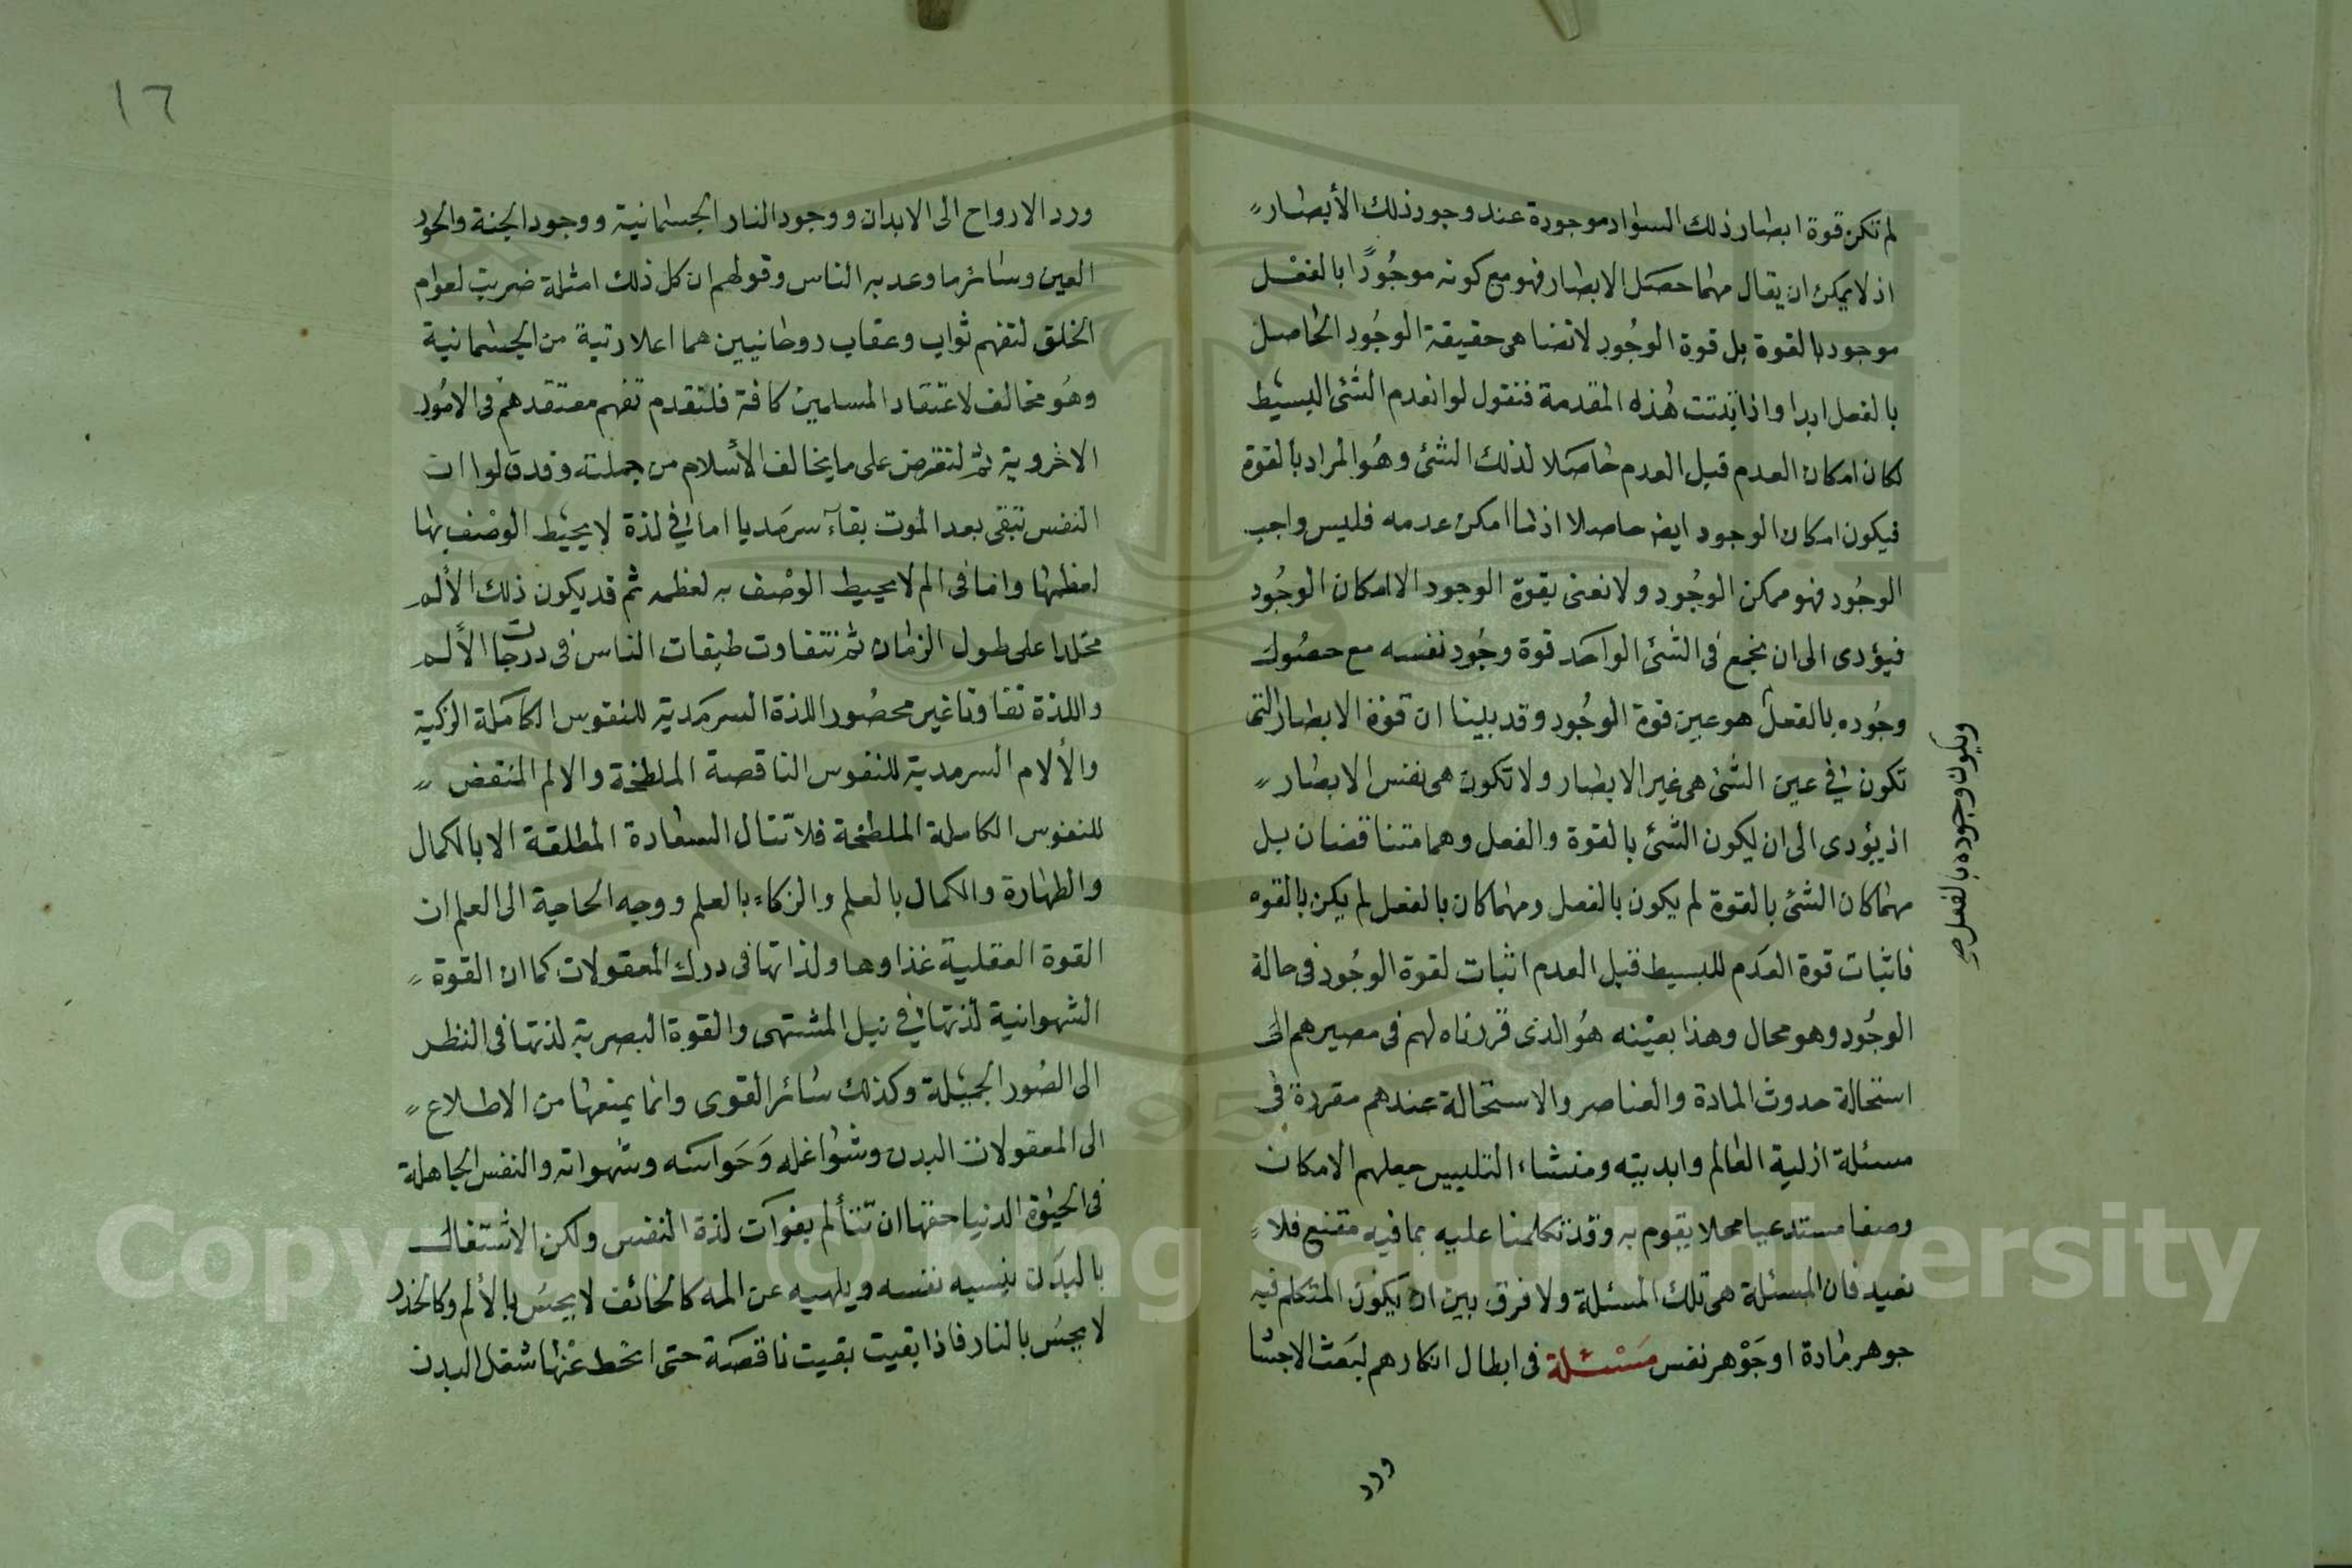 لم تكن قوة ابصار ذلك السواد موجودة عند وجود ذلك الأبصار
اذ لا يمكن ان يقال مهما حصل الابصار فهو مع كونه موجودًا بالفعل
موجود بالقوة بل قوة الوجود لا تضاهى حقيقة الوجود الحاصل
بالفعل ابدا واذا ثبتت هذه المقدمة فنقول لو انعدم الشئ البسيط
لكان امكان العدم قبل العدم حاصلا لذلك الشئ وهو المراد بالقوة
فيكون امكان الوجود ايضا حاصلا اذ ما امكن عدمه فليس واجب
الوجود فهو ممكن الوجود ولا نعنى بقوة الوجود الا امكان الوجود
فيؤدى الى ان يجمع فى الشئ الواحد قوة وجود نفسه مع حصول
وجوده بالفعل هو عين قوة الوجود وقد بينا ان قوة الابصار التى
ويكون وجوده بالفعل صح
تكون فى عين الشئ هى غير الابصار ولا تكون هى نفس الابصار
اذ يؤدى الى ان يكون الشئ بالقوة والفعل وهما متناقضان بل
مهما كان الشئ بالقوة لم يكون بالفعل ومهما كان بالفعل لم يكن بالقوه
فاثبات قوة العدم للبسيط قبل العدم اثبات لقوة الوجود فى حالة
الوجود وهو محال وهذا بعينه هو الذى قررناه لهم فى مصيرهم الى
استحالة حدوث المادة والعناصر والاستحالة عندهم مقررة فى
مسئلة ازلية العالم وابديته ومنشاء التلبيس جعلهم الامكان
وصفا مستدعيا محلا يقوم به وقد تكلمنا عليه بما فيه مقنع فلا
نعيد فان المسئلة هى تلك المسئلة ولا فرق بين ان يكون المتكلم فيه
جوهر مادة او جوهر نفس مسئلة فى ابطال انكارهم لبعث الاجسا
ورد
١٦
ورد الارواح الى الابدان ووجود النار الجسمانية ووجود الجنة والحور
العين وسائر ما وعد به الناس وقولهم ان كل ذلك امثلة ضربت لعوام
الخلق لتفهم ثواب وعقاب روحانيين هما اعلا رتبة من الجسمانية
وهو مخالف لاعتقاد المسلمين كافة فلنقدم تفهم معتقدهم فى الامور
الاخروية ثم لنعترض على ما يخالف الأسلام من جملته وقد قالوا ان
النفس تبقى بعد الموت بقاء سرمديا اما فى لذة لا يحيط الوصف بها
لعظمها واما فى الم لا يحيط الوصف به لعظمه ثم قد يكون ذلك الألم
مخلدا على طول الزمان ثم تتفاوت طبقات الناس فى درجات الألم
واللذة تفاوتا غير محصور اللذة السرمدية للنفوس الكاملة الزكية
والألام السرمدية للنفوس الناقصة الملطخة والالم المنقض
للنفوس الكاملة الملطخة فلا تنال السعادة المطلقة الا بالكمال
والطهارة والكمال بالعلم والزكاء بالعلم ووجه الحاجة الى العلم ان
القوة العقلية غذاوها ولذاتها فى درك المعقولات كما ان القوة
الشهوانية لذتها فى نيل المشتهى والقوة البصرية لذتها فى النظر
الى الصور الجميلة وكذلك سائر القوى وانما يمنعها من الاطلاع
الى المعقولات البدن وشواغله وحواسه وشهواته والنفس الجاهلة
فى الحيوة الدنيا حقها ان تتألم بفوات لذة النفس ولكن الاشتغال
بالبدن ينسيه نفسه ويلهيه عن المه كالخائف لا يحس بالألم وكالخدر
لا يحس بالنار فاذا بقيت بقيت ناقصة حتى انحط عنها شغل البدن
Copyright © King Saud University
1957